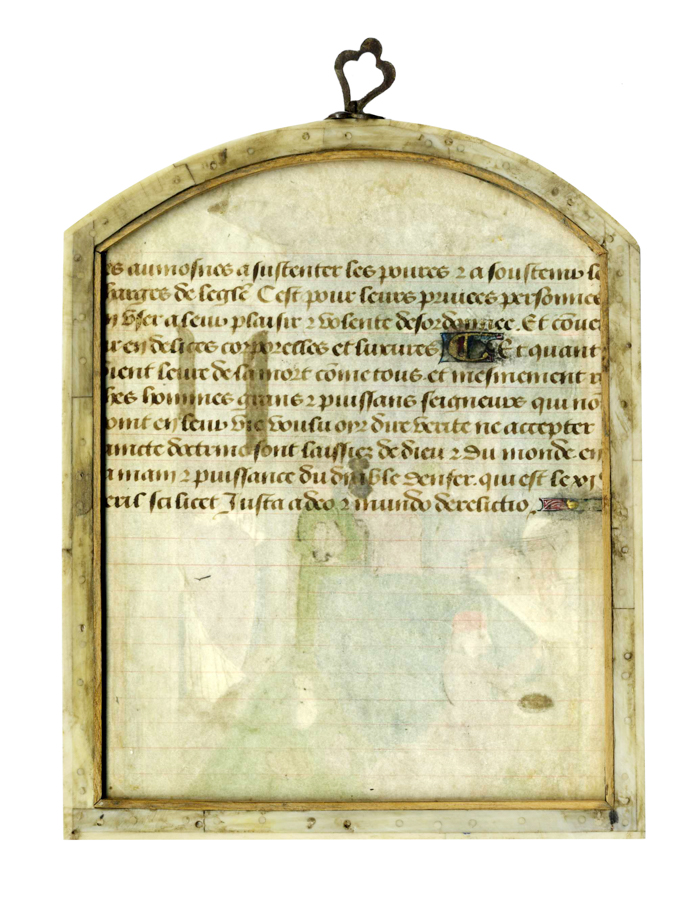 es aumosnes a sustenter les poures ⁊ a soustenir le
harges de leglē Cest pour leurs priuees personnes
vser a leur plaisir ⁊ volente desordonnee. Et cōue
r en delices corporelles et luxures Et quant
ient leure de la mort cōme tous et mesmement
hes hommes grans ⁊ puissans seigneurs qui nō
ont en leur vie voulu oir dire verite ne accepter
aincte doctrine sont laissiez de dieu ⁊ du monde en
a main ⁊ puissance du diable denfer. qui est le xj
eril scilicet Justa a deo ⁊ mundo derelictio.